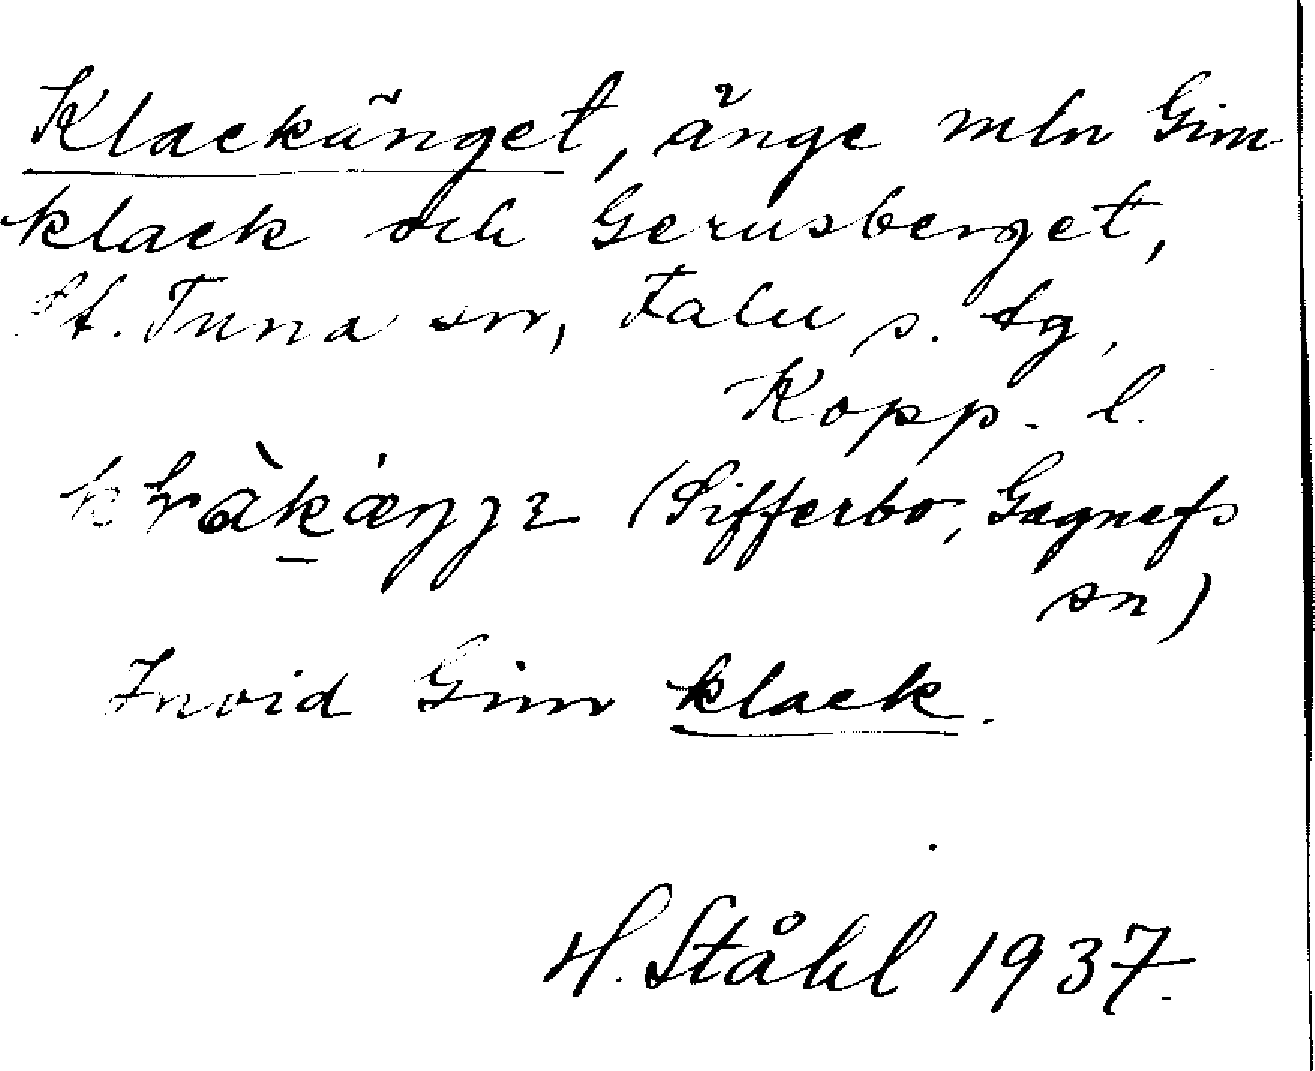 Klackänget, änge mln Gim
klack och Gerusberget,
St. Tuna sn, Falu s. tg,
Kopp. l.
(Sifferbo, Gagnefs
sn)
Invid Gim klack.
H. Ståhl 1937.